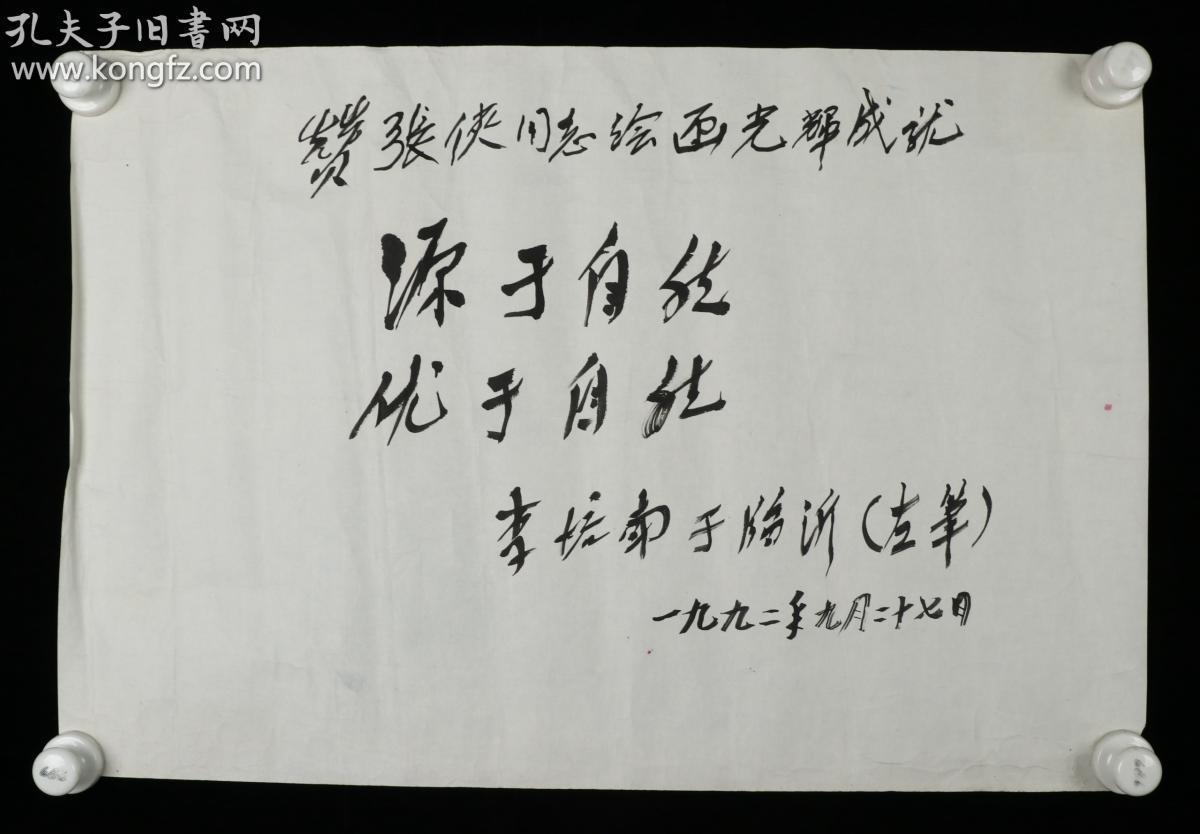 孔夫子旧書网
www.kongfz.com
赞張侠同志绘画光輝成就
源于自然
优于自然
李培南于临沂(左笔)
一九九二年九月二十七日